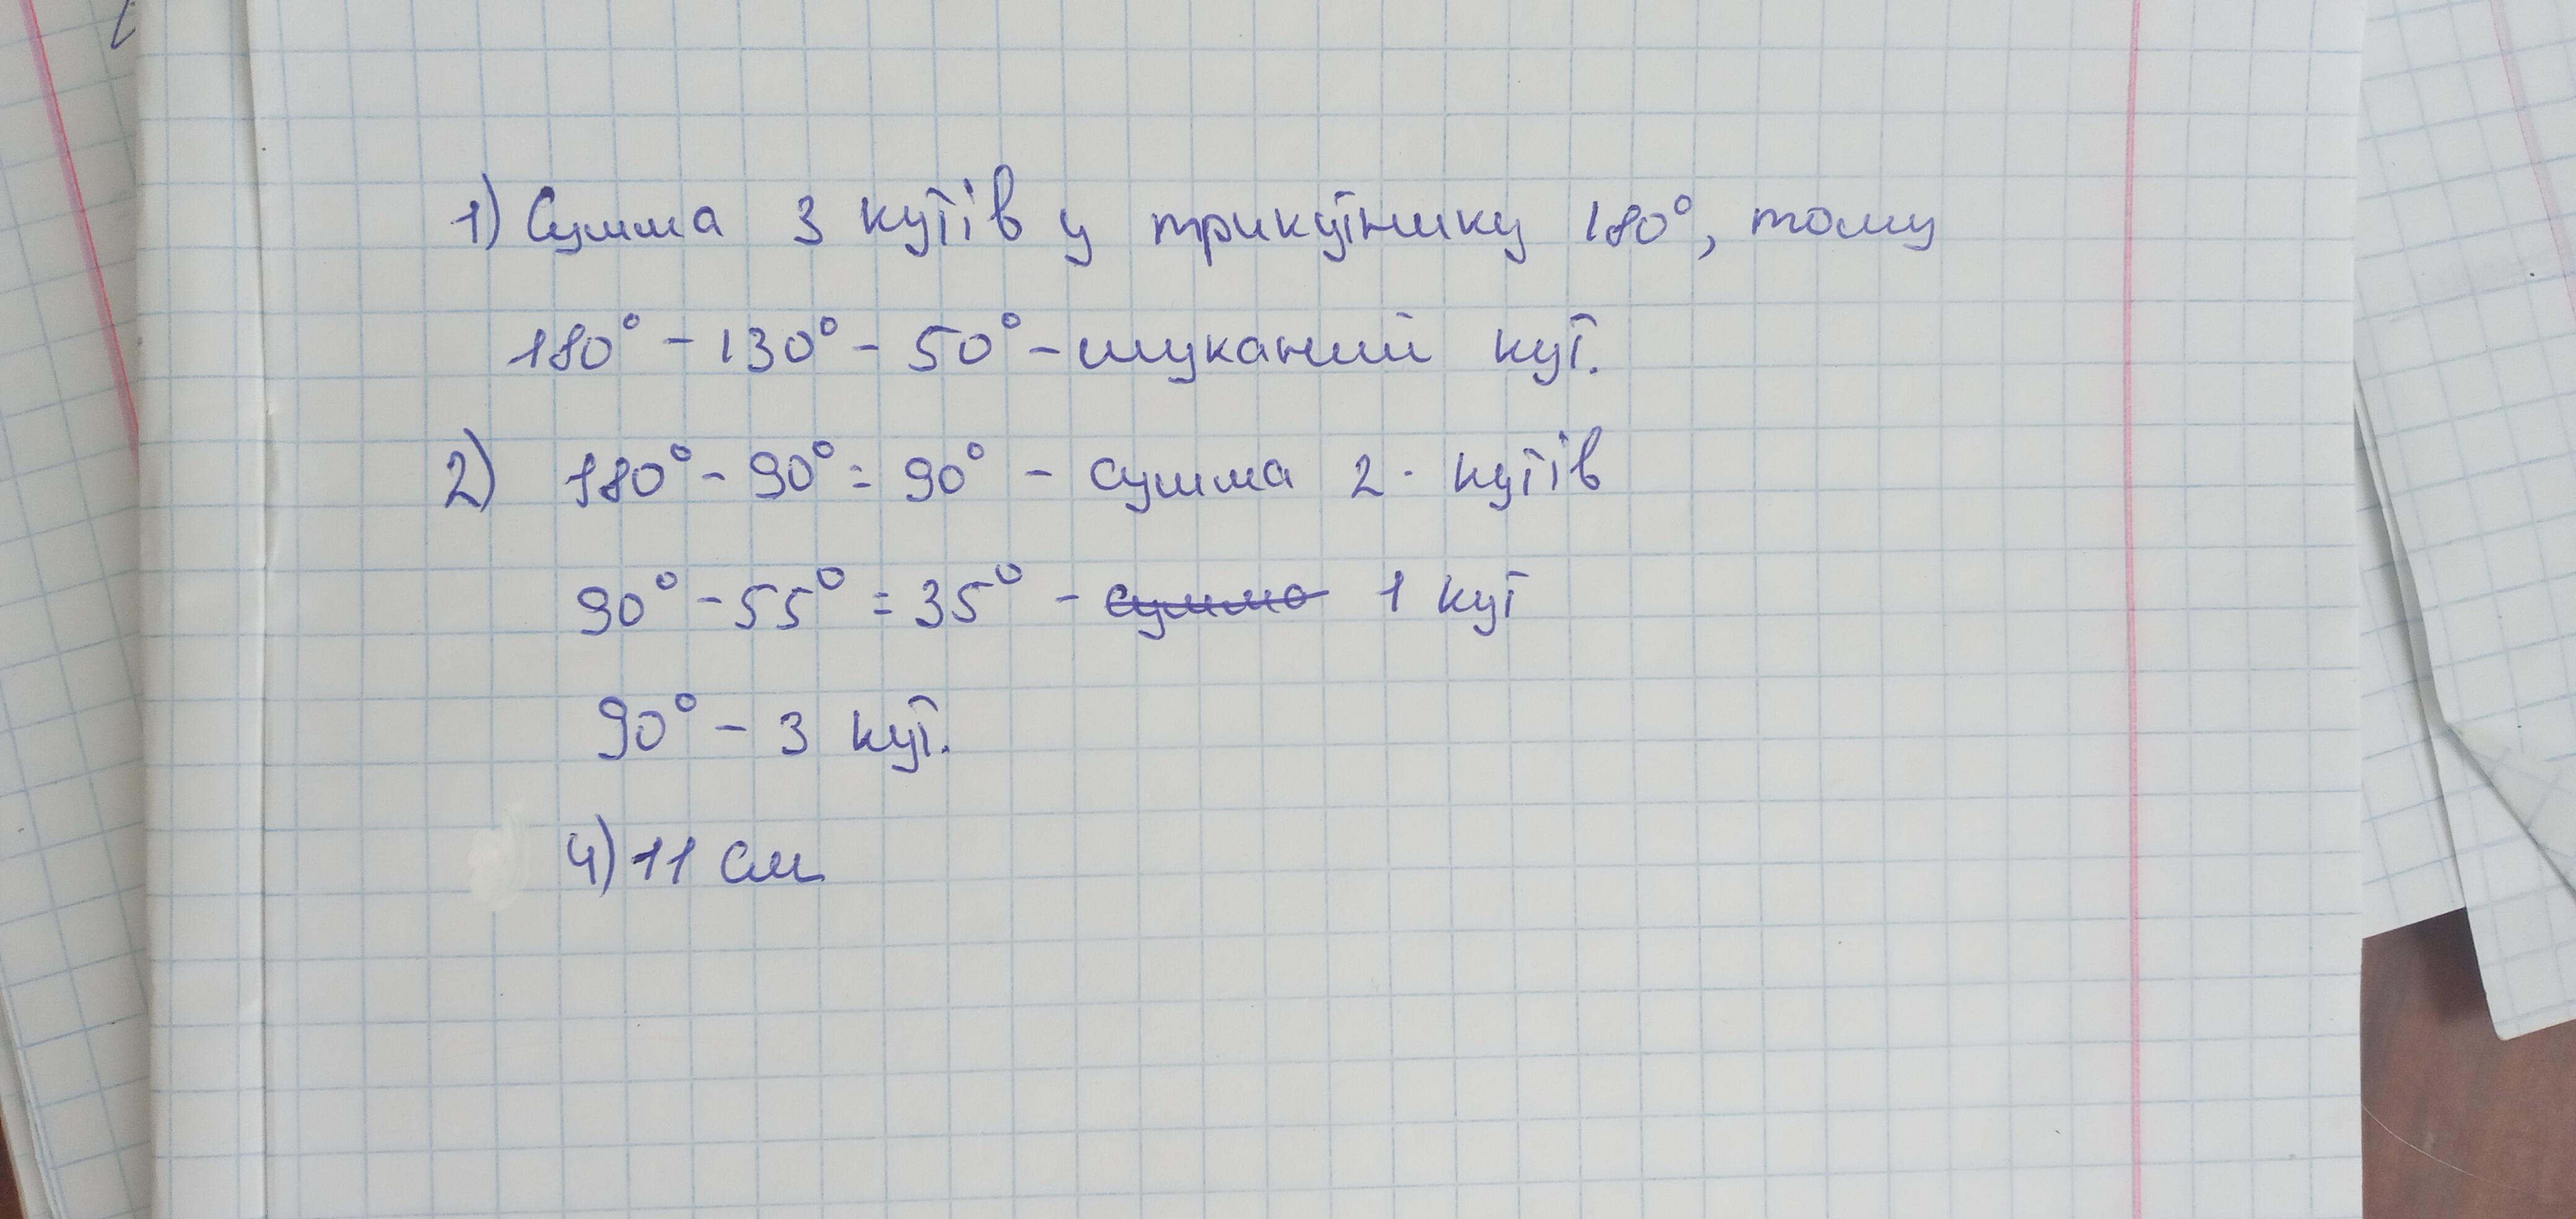 1) Сумма 3 кутів у трикутнику 180°, тому
180° - 130° - 50° - шуканий кут.
2) 180° - 90° = 90° - сумма 2 кутів
90° - 55° = 35° - сумма 1 кут
90° - 3 кут.
4) 11 см